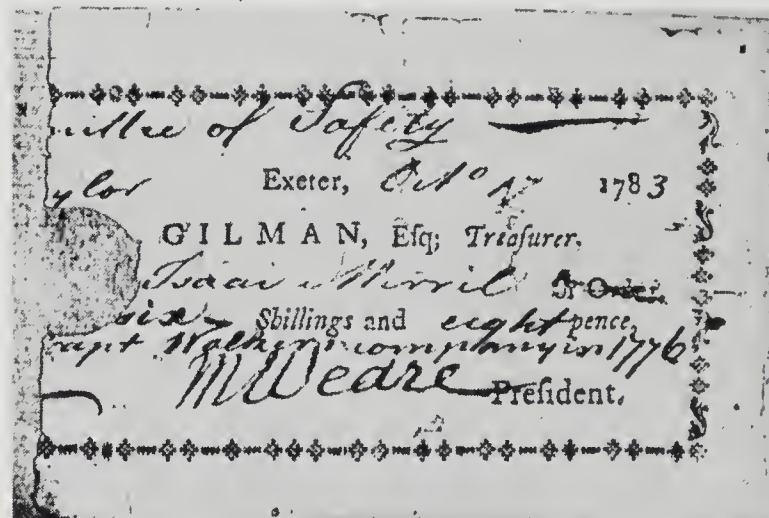 mittee of Safety
ylor Exeter, Octo 17 1783
GILMAN, Esq; Treasurer.
Isaac Merril or Order
six Shillings and eight pence,
Capt Walkers company in 1776
MWeare President.